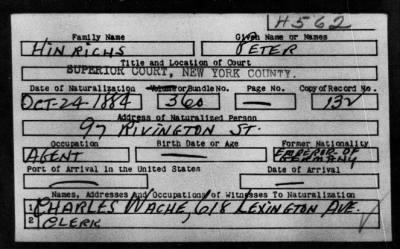 H562
Family Name Given Name or Names
HINRICHS PETER
Title and Location of Court
SUPERIOR COURT, NEW YORK COUNTY.
Date of Naturalization Volume or Bundle No. Page No. Copy of Record No.
Oct-24-1884 360 — 132
Address of Naturalized Person
97 RIVINGTON ST.
Occupation Birth Date or Age Former Nationality
AGENT — EMPEROR OF GERMANY
Port of Arrival in the United States Date of Arrival
— —
Names, Addresses and Occupations of Witnesses To Naturalization
1 CHARLES WACHE, 618 LEXINGTON AVE.
2 CLERK